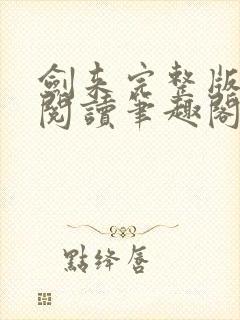 劍來完整版
閱讀筆趣閣
點絳唇